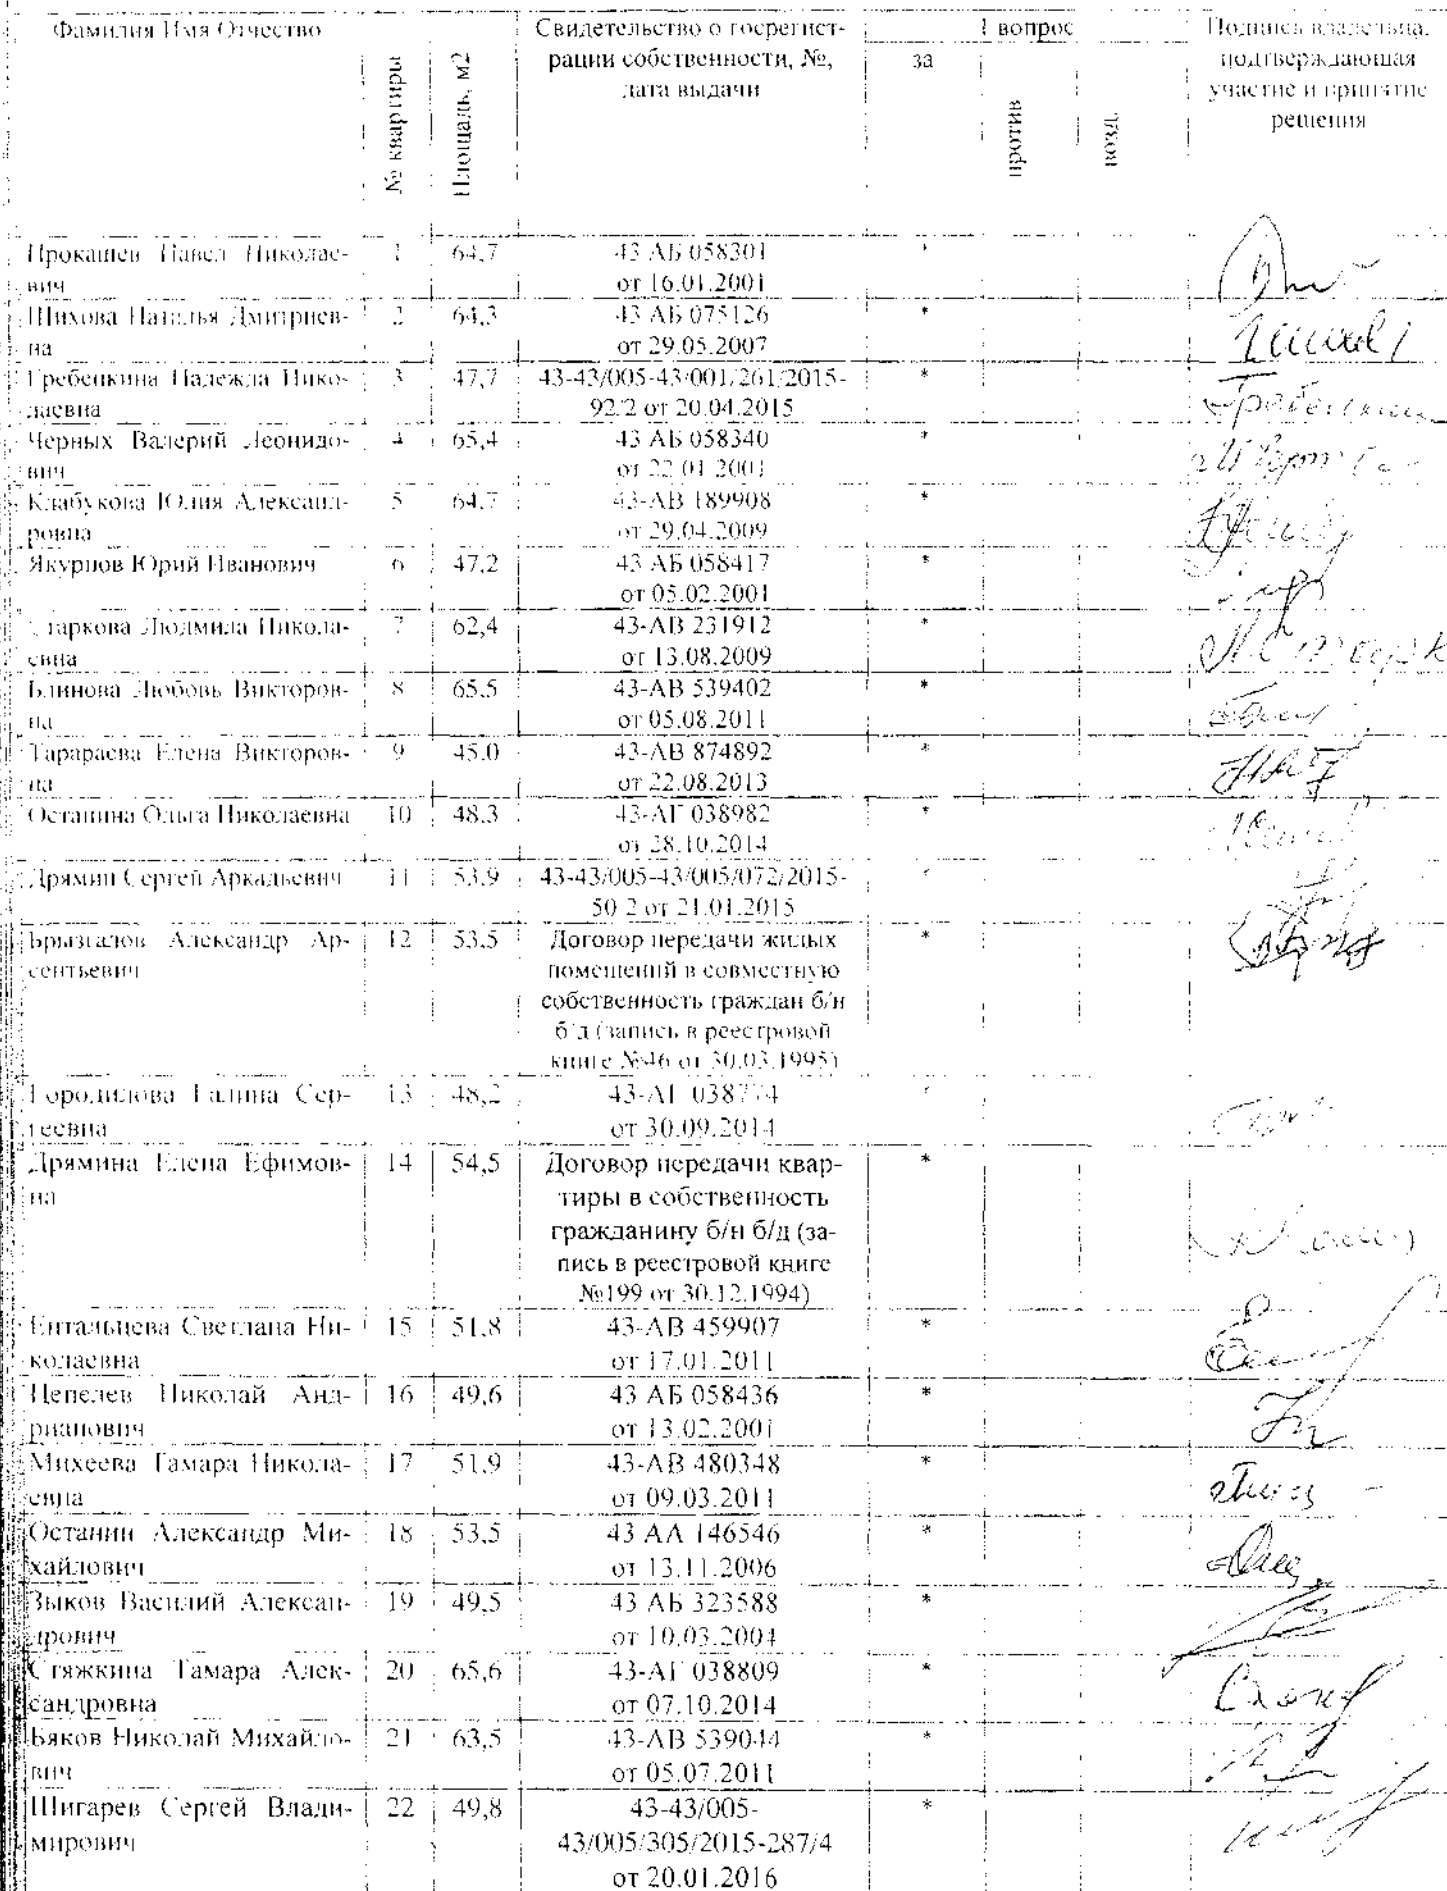 Фамилия Имя Отчество
№ квартиры
Площадь, м2
Свидетельство о госрегист-
рации собственности, №,
дата выдачи
1 вопрос
за
против
возд.
Подпись владельца,
подтверждающая
участие и принятие
решения
Прокашев Павел Николае- 1 64,7 43 АБ 058301 *
вич от 16.01.2001
Шихова Наталья Дмитриев- 2 64,3 43 АБ 075126 *
на от 29.05.2007
Гребенкина Надежда Нико- 3 47,7 43-43/005-43/001/261/2015- *
лаевна 92/2 от 20.04.2015
Черных Валерий Леонидо- 4 65,4 43 АБ 058340 *
вич от 22.01.2001
Клабукова Юлия Александ- 5 64,7 43-АВ 189908 *
ровна от 29.04.2009
Якурнов Юрий Иванович 6 47,2 43 АБ 058417 *
от 05.02.2001
Старкова Людмила Никола- 7 62,4 43-АВ 231912 *
евна от 13.08.2009
Блинова Любовь Викторов- 8 65,5 43-АВ 539402 *
на от 05.08.2011
Тарараева Елена Викторов- 9 45,0 43-АВ 874892 *
на от 22.08.2013
Останина Ольга Николаевна 10 48,3 43-АГ 038982 *
от 28.10.2014
Дрямин Сергей Аркадьевич 11 53,9 43-43/005-43/005/072/2015- *
50/2 от 21.01.2015
Брызгалов Александр Ар- 12 53,5 Договор передачи жилых *
сентьевич помещений в совместную
собственность граждан б/н
б/д (запись в реестровой
книге №46 от 30.03.1995)
Городилова Галина Сер- 13 48,2 43-АГ 038774 *
геевна от 30.09.2014
Дрямина Елена Ефимов- 14 54,5 Договор передачи квар- *
на тиры в собственность
гражданину б/н б/д (за-
пись в реестровой книге
№199 от 30.12.1994)
Ентальцева Светлана Ни- 15 51,8 43-АВ 459907 *
колаевна от 17.01.2011
Цепелев Николай Анд- 16 49,6 43 АБ 058436 *
рианович от 13.02.2001
Михеева Тамара Никола- 17 51,9 43-АВ 480348 *
евна от 09.03.2011
Останин Александр Ми- 18 53,5 43 АА 146546 *
хайлович от 13.11.2006
Зыков Василий Алексан- 19 49,5 43 АБ 323588 *
дрович от 10.03.2004
Стяжкина Тамара Алек- 20 65,6 43-АГ 038809 *
сандровна от 07.10.2014
Бяков Николай Михайло- 21 63,5 43-АВ 539044 *
вич от 05.07.2011
Шигарев Сергей Влади- 22 49,8 43-43/005- *
мирович 43/005/305/2015-287/4
от 20.01.2016